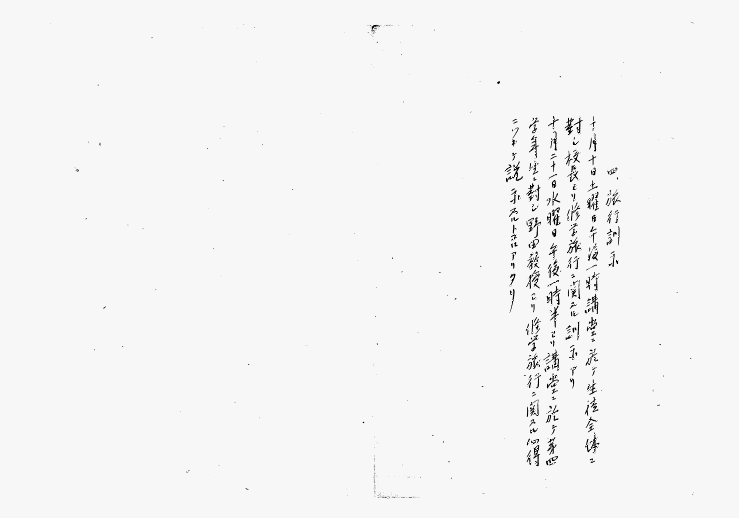 四、旅行訓示
十月十日土曜日午後一時講堂ニ於テ生徒全体ニ
対シ校長ヨリ修学旅行ニ関スル訓示アリ
十月二十一日水曜日午後一時半ヨリ講堂ニ於テ第四
学年生ニ対シ野田教授ヨリ修学旅行ニ関スル心得
ニツキテ説示スルトコロアリタリ